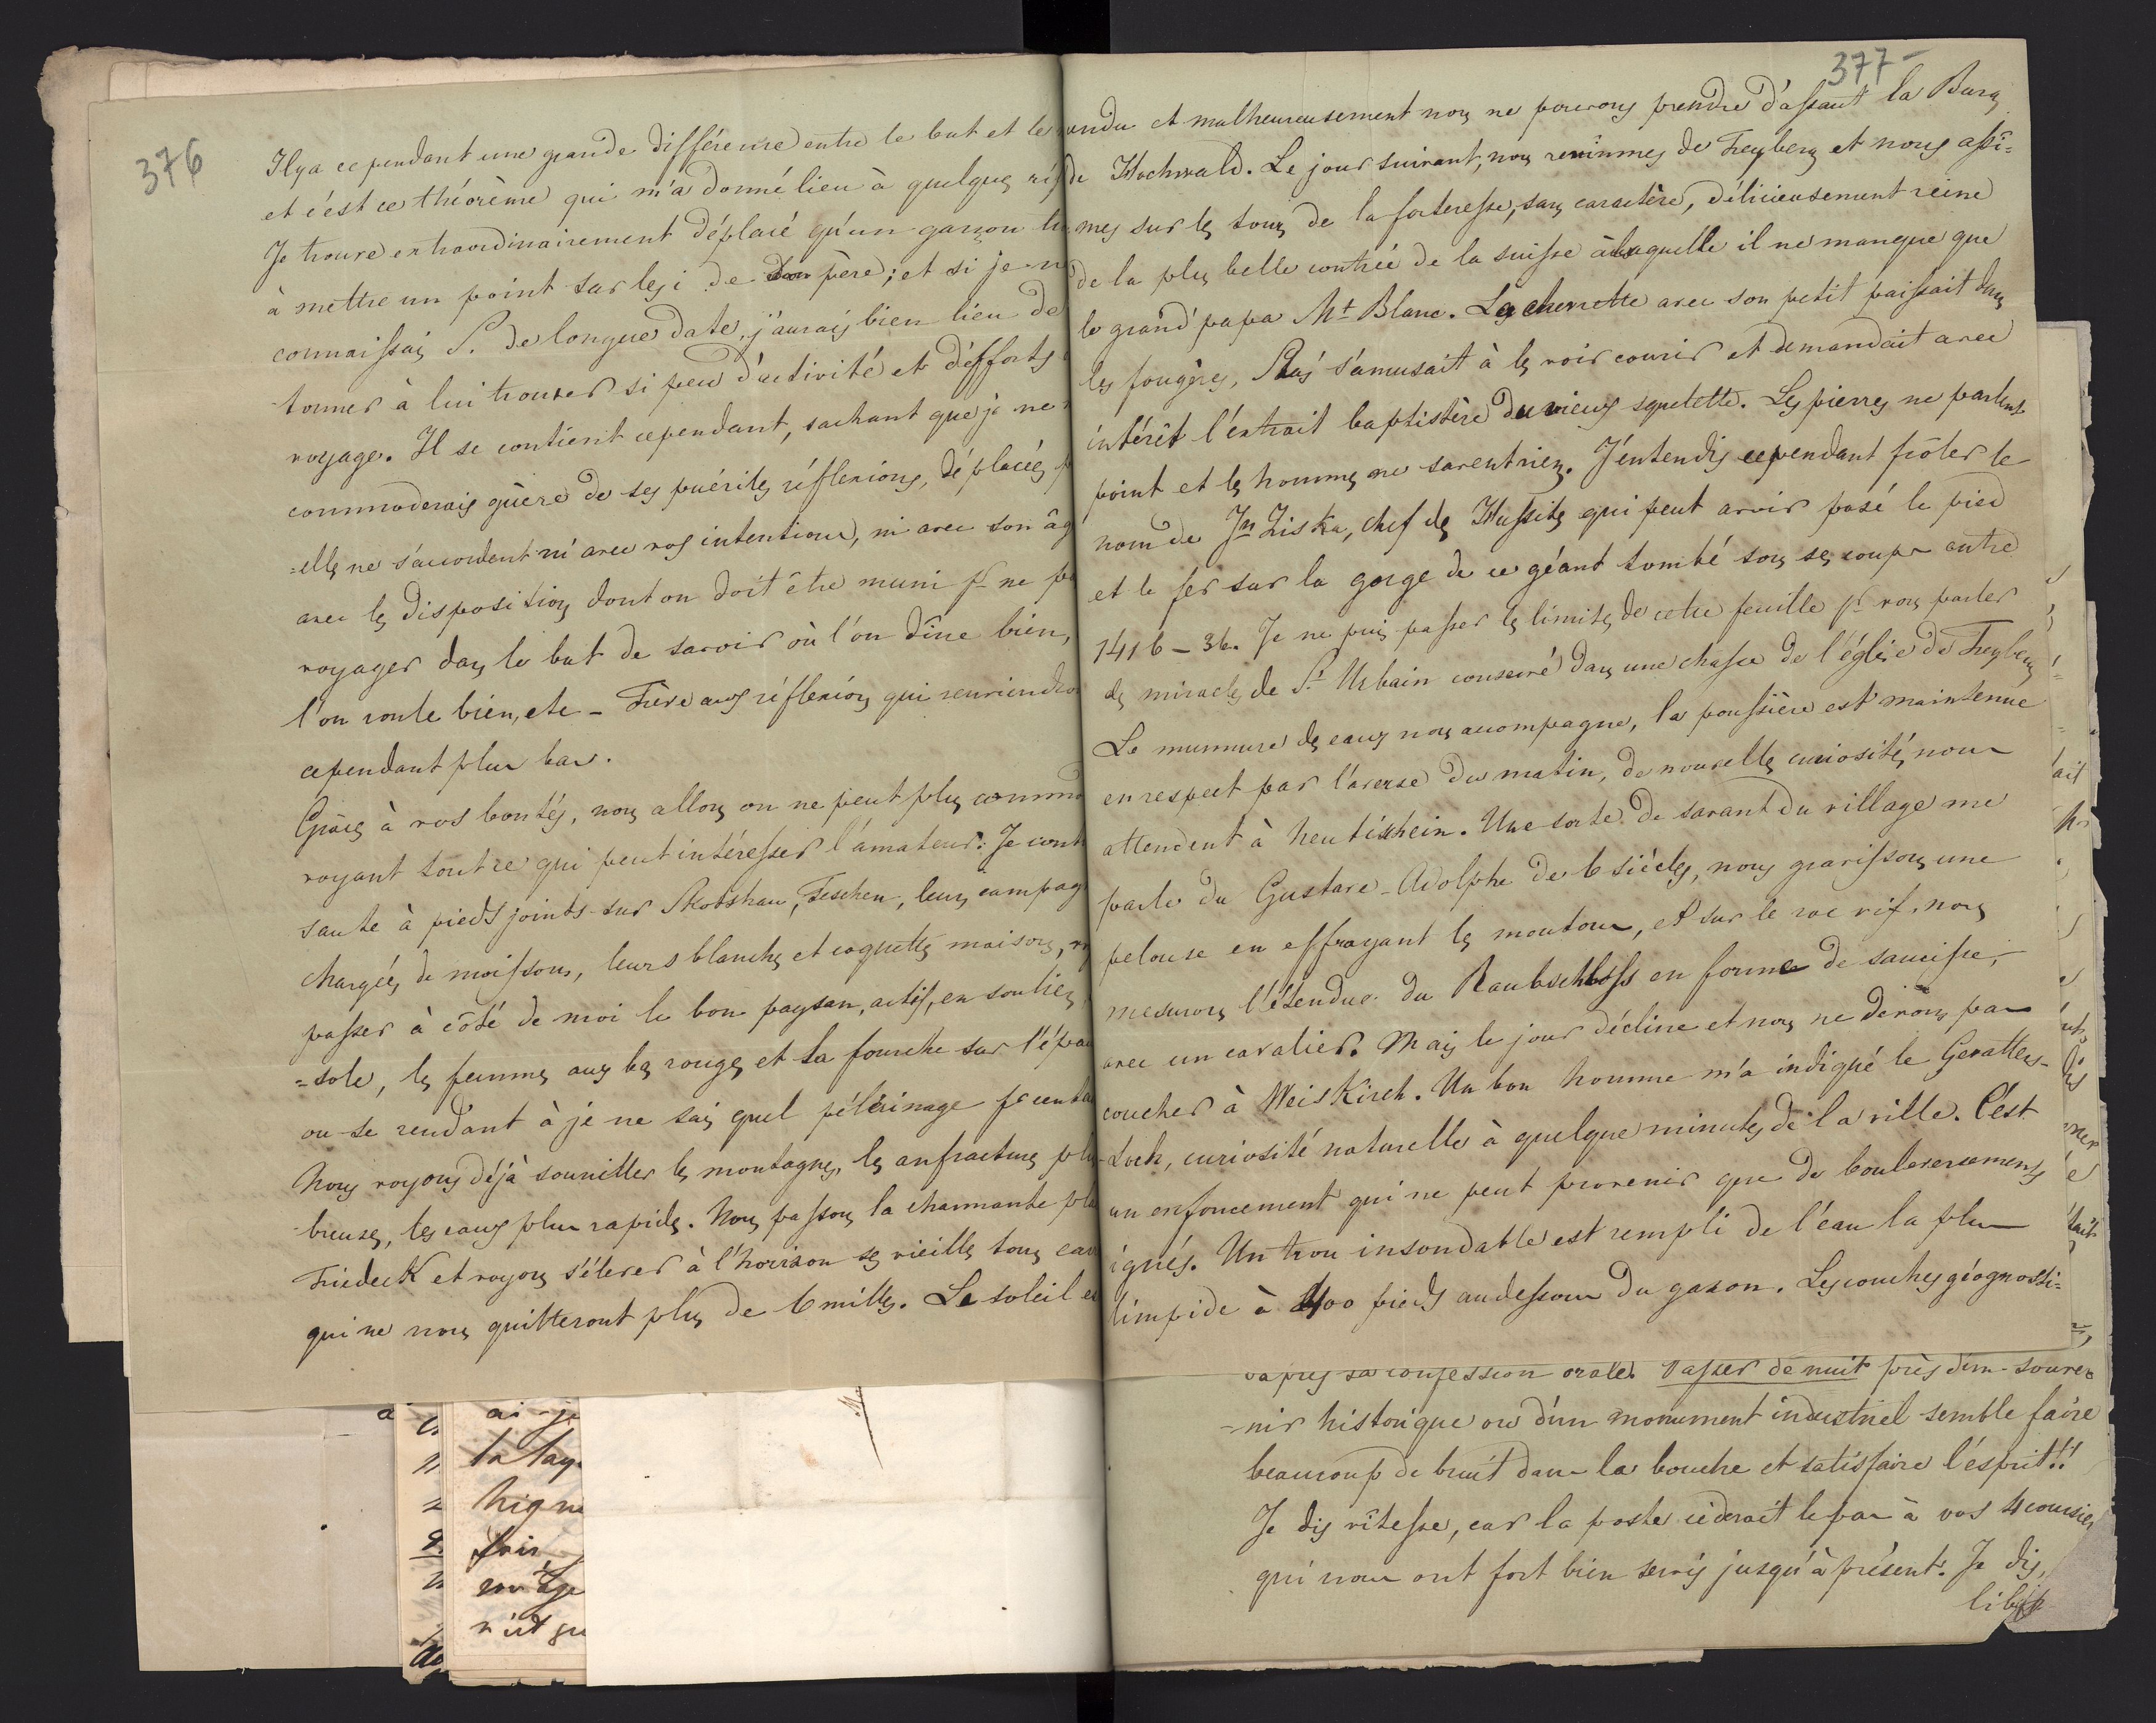 376
Il y a cependant une grande différence entre le but et les
et c'est ce théorème qui m'a donné lieu à quelques réf
Je trouve extraordinairement déplacé qu'un garçon
à mettre un point sur les i de son père; et si je n
connaissais S. de longue date, j'aurais bien lieu de
tonner à lui trouver si peu d'activité et d'efforts
voyage. Il se contient cependant, sachant que je ne
commoderais guère de ses puériles réflexions, déplacées
=elles ne s'accordent ni avec vos intentions, ni avec son âg
avec les dispositions dont on doit être muni pr ne p
voyager dans le but de savoir où l'on dîne bien,
l'on roule bien, etc - Trève aux réflexions qui reviendro
cependant plus bas.
Grâces à vos bontés, nous allons on ne peut plus commod
voyant tout ce qui peut intéresser l'amateur. Je cont
saute à pieds joints sur Skotshau, Teschen, leurs campag
chargées de moissons, leurs blanches et coquettes maisons,
passer à côté de moi le bon paysan, actif, en soulier
=sole, les femmes aux bas rouges et la fourche sur l'épau
ou se rendant à je ne sais quel pélérinage
Nous voyons déjà sourciller les montagnes, les anfractures plu
breuses, les eaux plus rapides. Nous passons la charmante pla
Friedeck et voyons s'élever à l'horizon ses vieilles tours
qui ne nous quitteront plus de 6 milles. Le soleil
377-
et malheureusement nous ne pouvons prendre d'assaut la Burg
de Hochwald. Le jour suivant, nous revînmes de Freyberg et nous assî=
mes sur les tours de la forteresse, sans caractère, délicieusement reine
de la plus belle contrée de la suisse à laquelle il ne manque que
le grand' papa Mt Blanc. La chevrette avec son petit paissait dans
les fougères, Stás s'amusait à les voir courir et demandait avec
intérêt l'extrait baptistère du vieux squelette. Les pierres ne parlent
point et les hommes ne savent rien. J'entendis cependant frôler le
nom de Jn Ziska, chef des Hussites qui peut avoir posé le pied
et le fer sur la gorge de ce géant tombé sous ses coups entre
1416-36. Je ne puis passer les limites de cette feuille pr vous parler
des miracles de St Urbain conservé dans une chasse de l'église de Freyberg
Le murmure des eaux nous accompagne, la poussière est maintenue
en respect par l'averse du matin, de nouvelles curiosités nous
attendent à Neutischein. Une sorte de savant du village me
parle du Gustave-Adolphe de 6 siècles, nous gravissons une
pelouse en effrayant les moutons, et sur le roc vif, nous
mesurons l'étendue du Raubschloss en forme de saucisse,
avec un cavalier. Mais le jour décline et nous ne devons pas
coucher à Weiskirch. Un bon homme m'a indiqué le Gevatter-
Loch, curiosité naturelle à quelques minutes de la ville. C'est
un enfoncement qui ne peut provenir que de bouleversements
ignés. Un trou insondable est rempli de l'eau la plus
limpide à 400 pieds audessous du gazon. Les couches géognosti=
d'après sa confession orale. Passer de nuit près d'un souve=
=nir historique ou d'un monument industriel semble faire
beaucoup de bruit dans la bouche et satisfaire l'esprit!!
Je dis vîtesse, car la poste cèderait le pas à vos 4 coursiers
qui nous ont fort bien servis jusqu'à présent. Je dis,